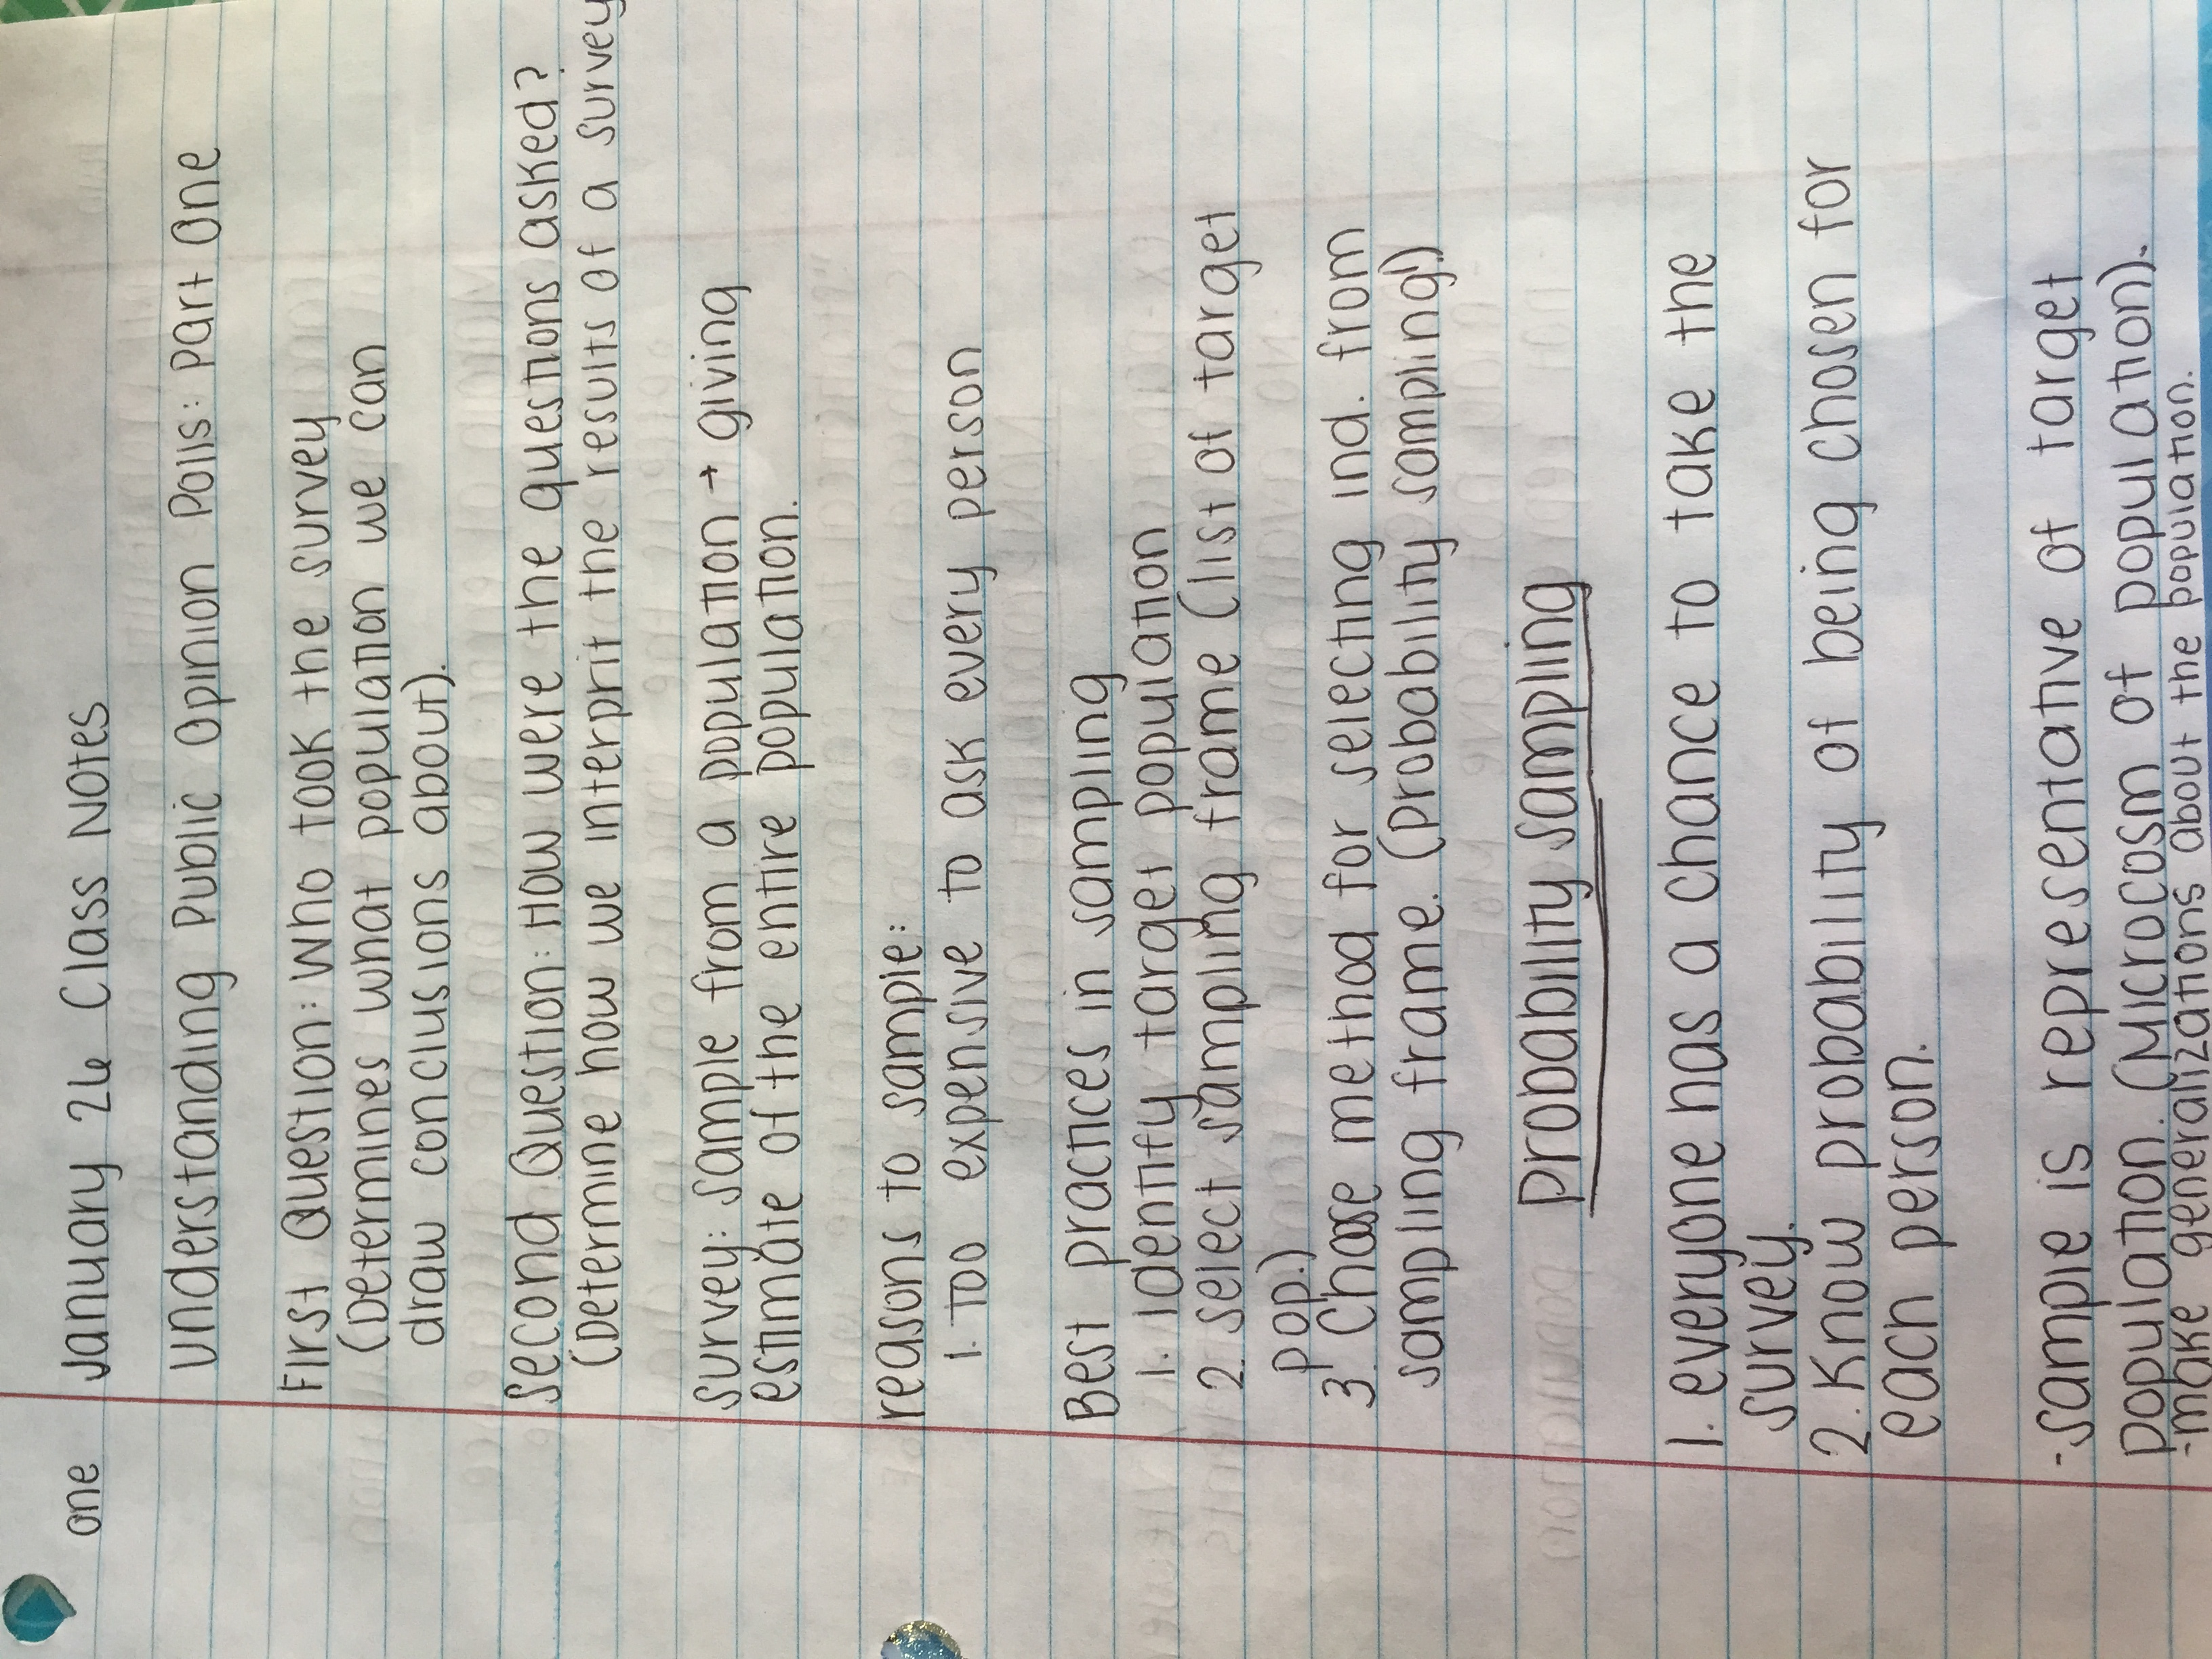 one January 26 Class Notes
Understanding Public Opinion Polls: Part One
First Question: Who took the survey
(Determines what population we can
draw conclusions about).
Second Question: How were the questions asked?
(Determine how we interprit the results of a survey
Survey: Sample from a population → giving
estimate of the entire population.
reasons to sample:
1. Too expensive to ask every person
Best practices in sampling
1. Identify target population
2. select sampling frame (list of target
pop.)
3. Choose method for selecting ind. from
sampling frame. (Probability sampling!)
Probability sampling
1. everyone has a chance to take the
survey.
2. Know probability of being chosen for
each person.
-sample is representative of target
population. (Microcosm of population).
-make generalizations about the population.